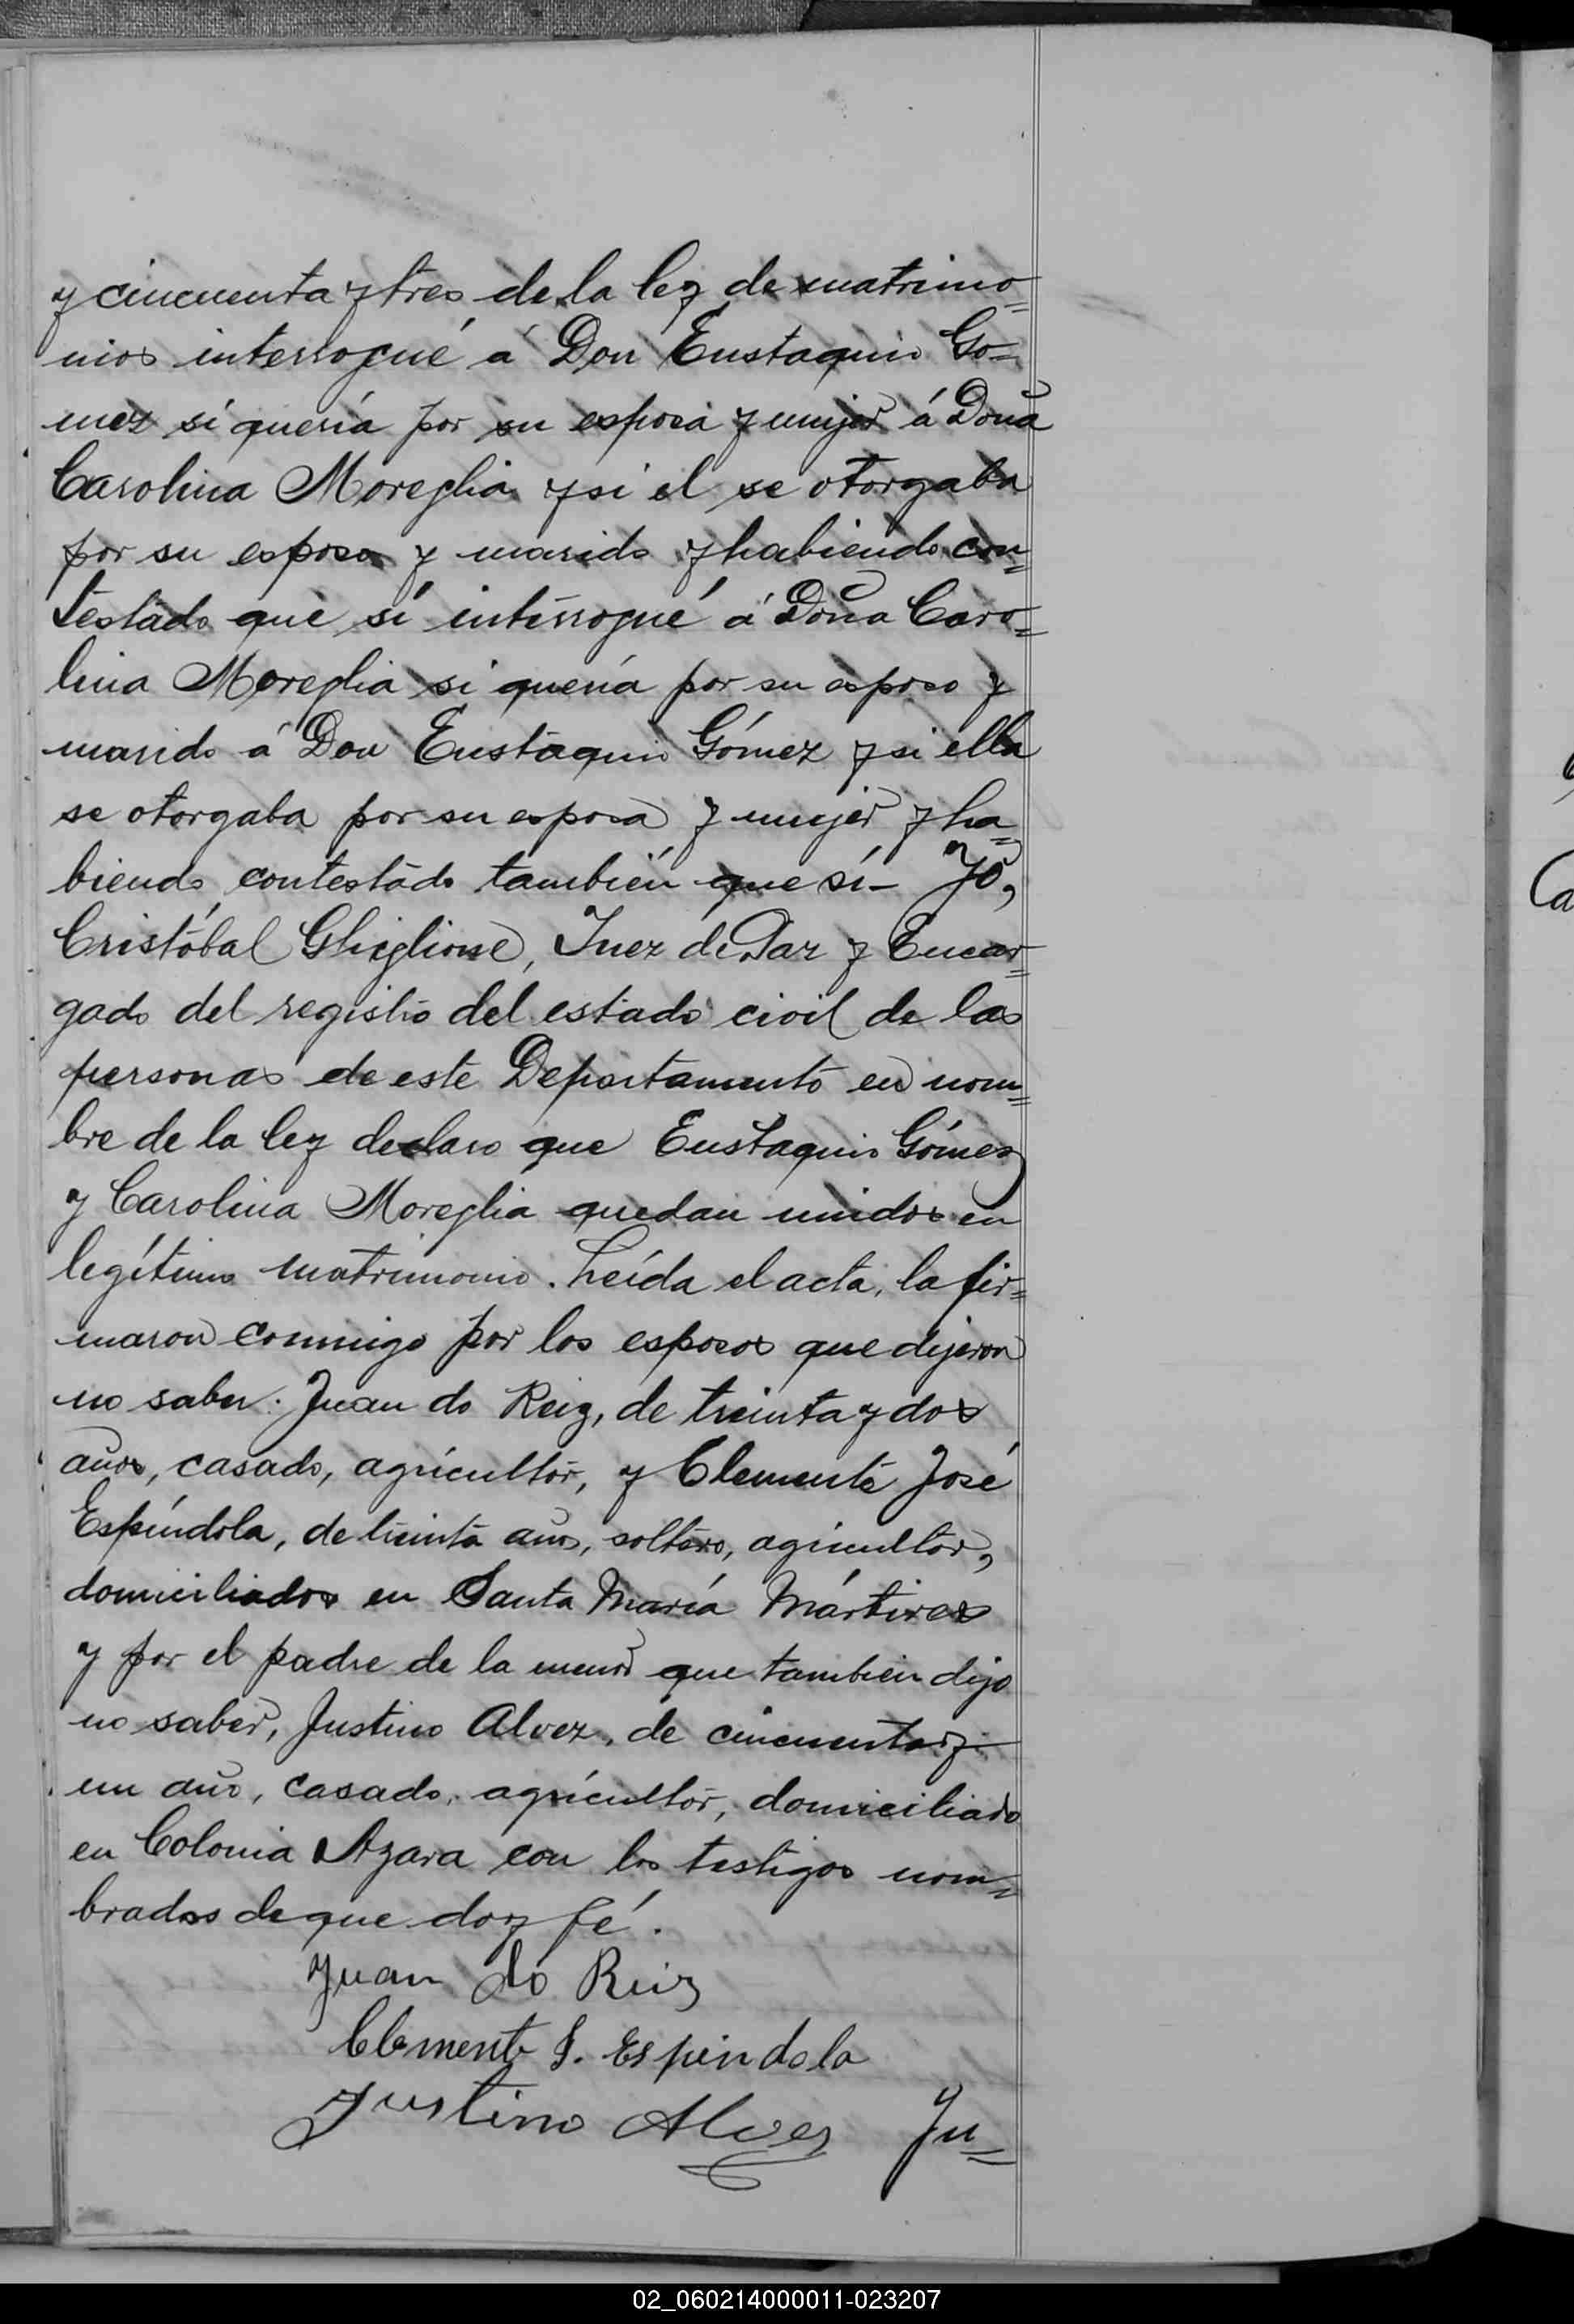 y cincuenta y tres de la ley de matrimo=
nios interrogué á Don Eustaquio Go=
mez si quería por su esposa y mujer á Doña
Carolina Moreglia y si el se otorgaba
por su esposo y marido y habiendo con=
testado que sí interrogué á Doña Caro=
lina Moreglia si quería por su esposo y
marido á Don Eustaquio Gómez y si ella
se otorgaba por su esposa y mujer y ha=
biendo contestado también que sí— Yo,
Cristóbal Ghiglione, Juez de Paz y Encar=
gado del registro del estado civil de las
personas de este Departamento en nom=
bre de la ley declaro que Eustaquio Gómez
y Carolina Moreglia quedan unidos en
legítimo matrimonio. Leída el acta, la fir=
maron conmigo por los esposos que dijeron
no saber. Juan do Reiz, de treinta y dos
años, casado, agricultor, y Clemente José
Espíndola, de treinta años, soltero, agricultor,
domiciliados en Santa María Mártires
y por el padre de la menor que tambien dijo
no saber, Justino Alvez, de cincuenta y
un año, casado, agricultor, domiciliado
en Colonia Azara con los testigos nom=
brados de que doy fé.
Juan do Reiz
Clemente J. Espindola
Justino Alves Ju=
Ca
02_060214000011-023207